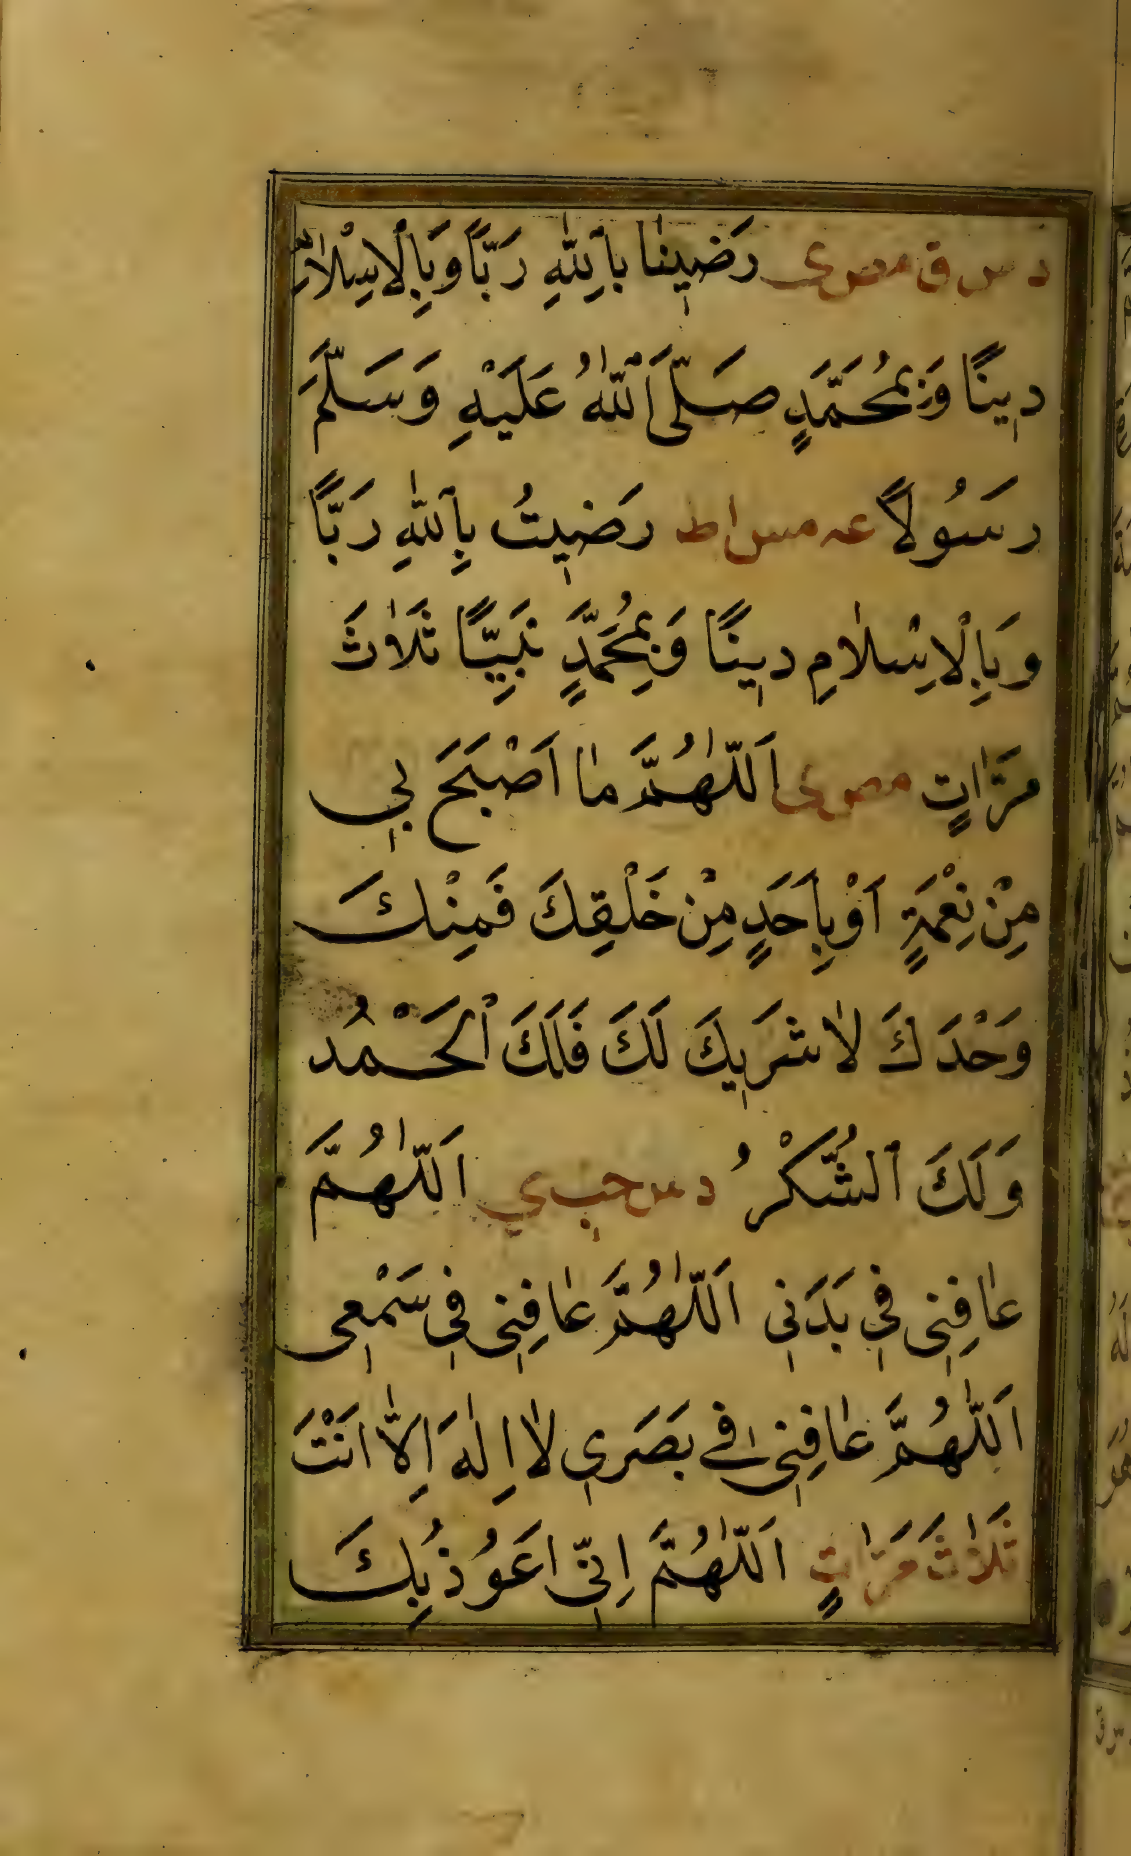 د س ق مص ى رَضِينَا بِاللّٰهِ رَبًّا وَبِالْاِسْلَامِ
دِينًا وَبِمُحَمَّدٍ صَلَّى اللّٰهُ عَلَيْهِ وَسَلَّمَ
رَسُولًا عه مس ا ط رَضِيتُ بِاللّٰهِ رَبًّا
وَبِالْاِسْلَامِ دِينًا وَبِمُحَمَّدٍ نَبِيًّا ثَلَاثَ
مَرَّاتٍ مص ى اَللّٰهُمَّ مَا اَصْبَحَ بِي
مِنْ نِعْمَةٍ اَوْ بِاَحَدٍ مِنْ خَلْقِكَ فَمِنْكَ
وَحْدَكَ لَا شَرِيكَ لَكَ فَلَكَ الْحَمْدُ
وَلَكَ الشُّكْرُ د س حب ي اَللّٰهُمَّ
عَافِنِي فِي بَدَنِي اَللّٰهُمَّ عَافِنِي فِي سَمْعِي
اَللّٰهُمَّ عَافِنِي فِي بَصَرِي لَا اِلٰهَ اِلَّا اَنْتَ
ثَلَاثَ مَرَّاتٍ اَللّٰهُمَّ اِنِّي اَعُوذُ بِكَ